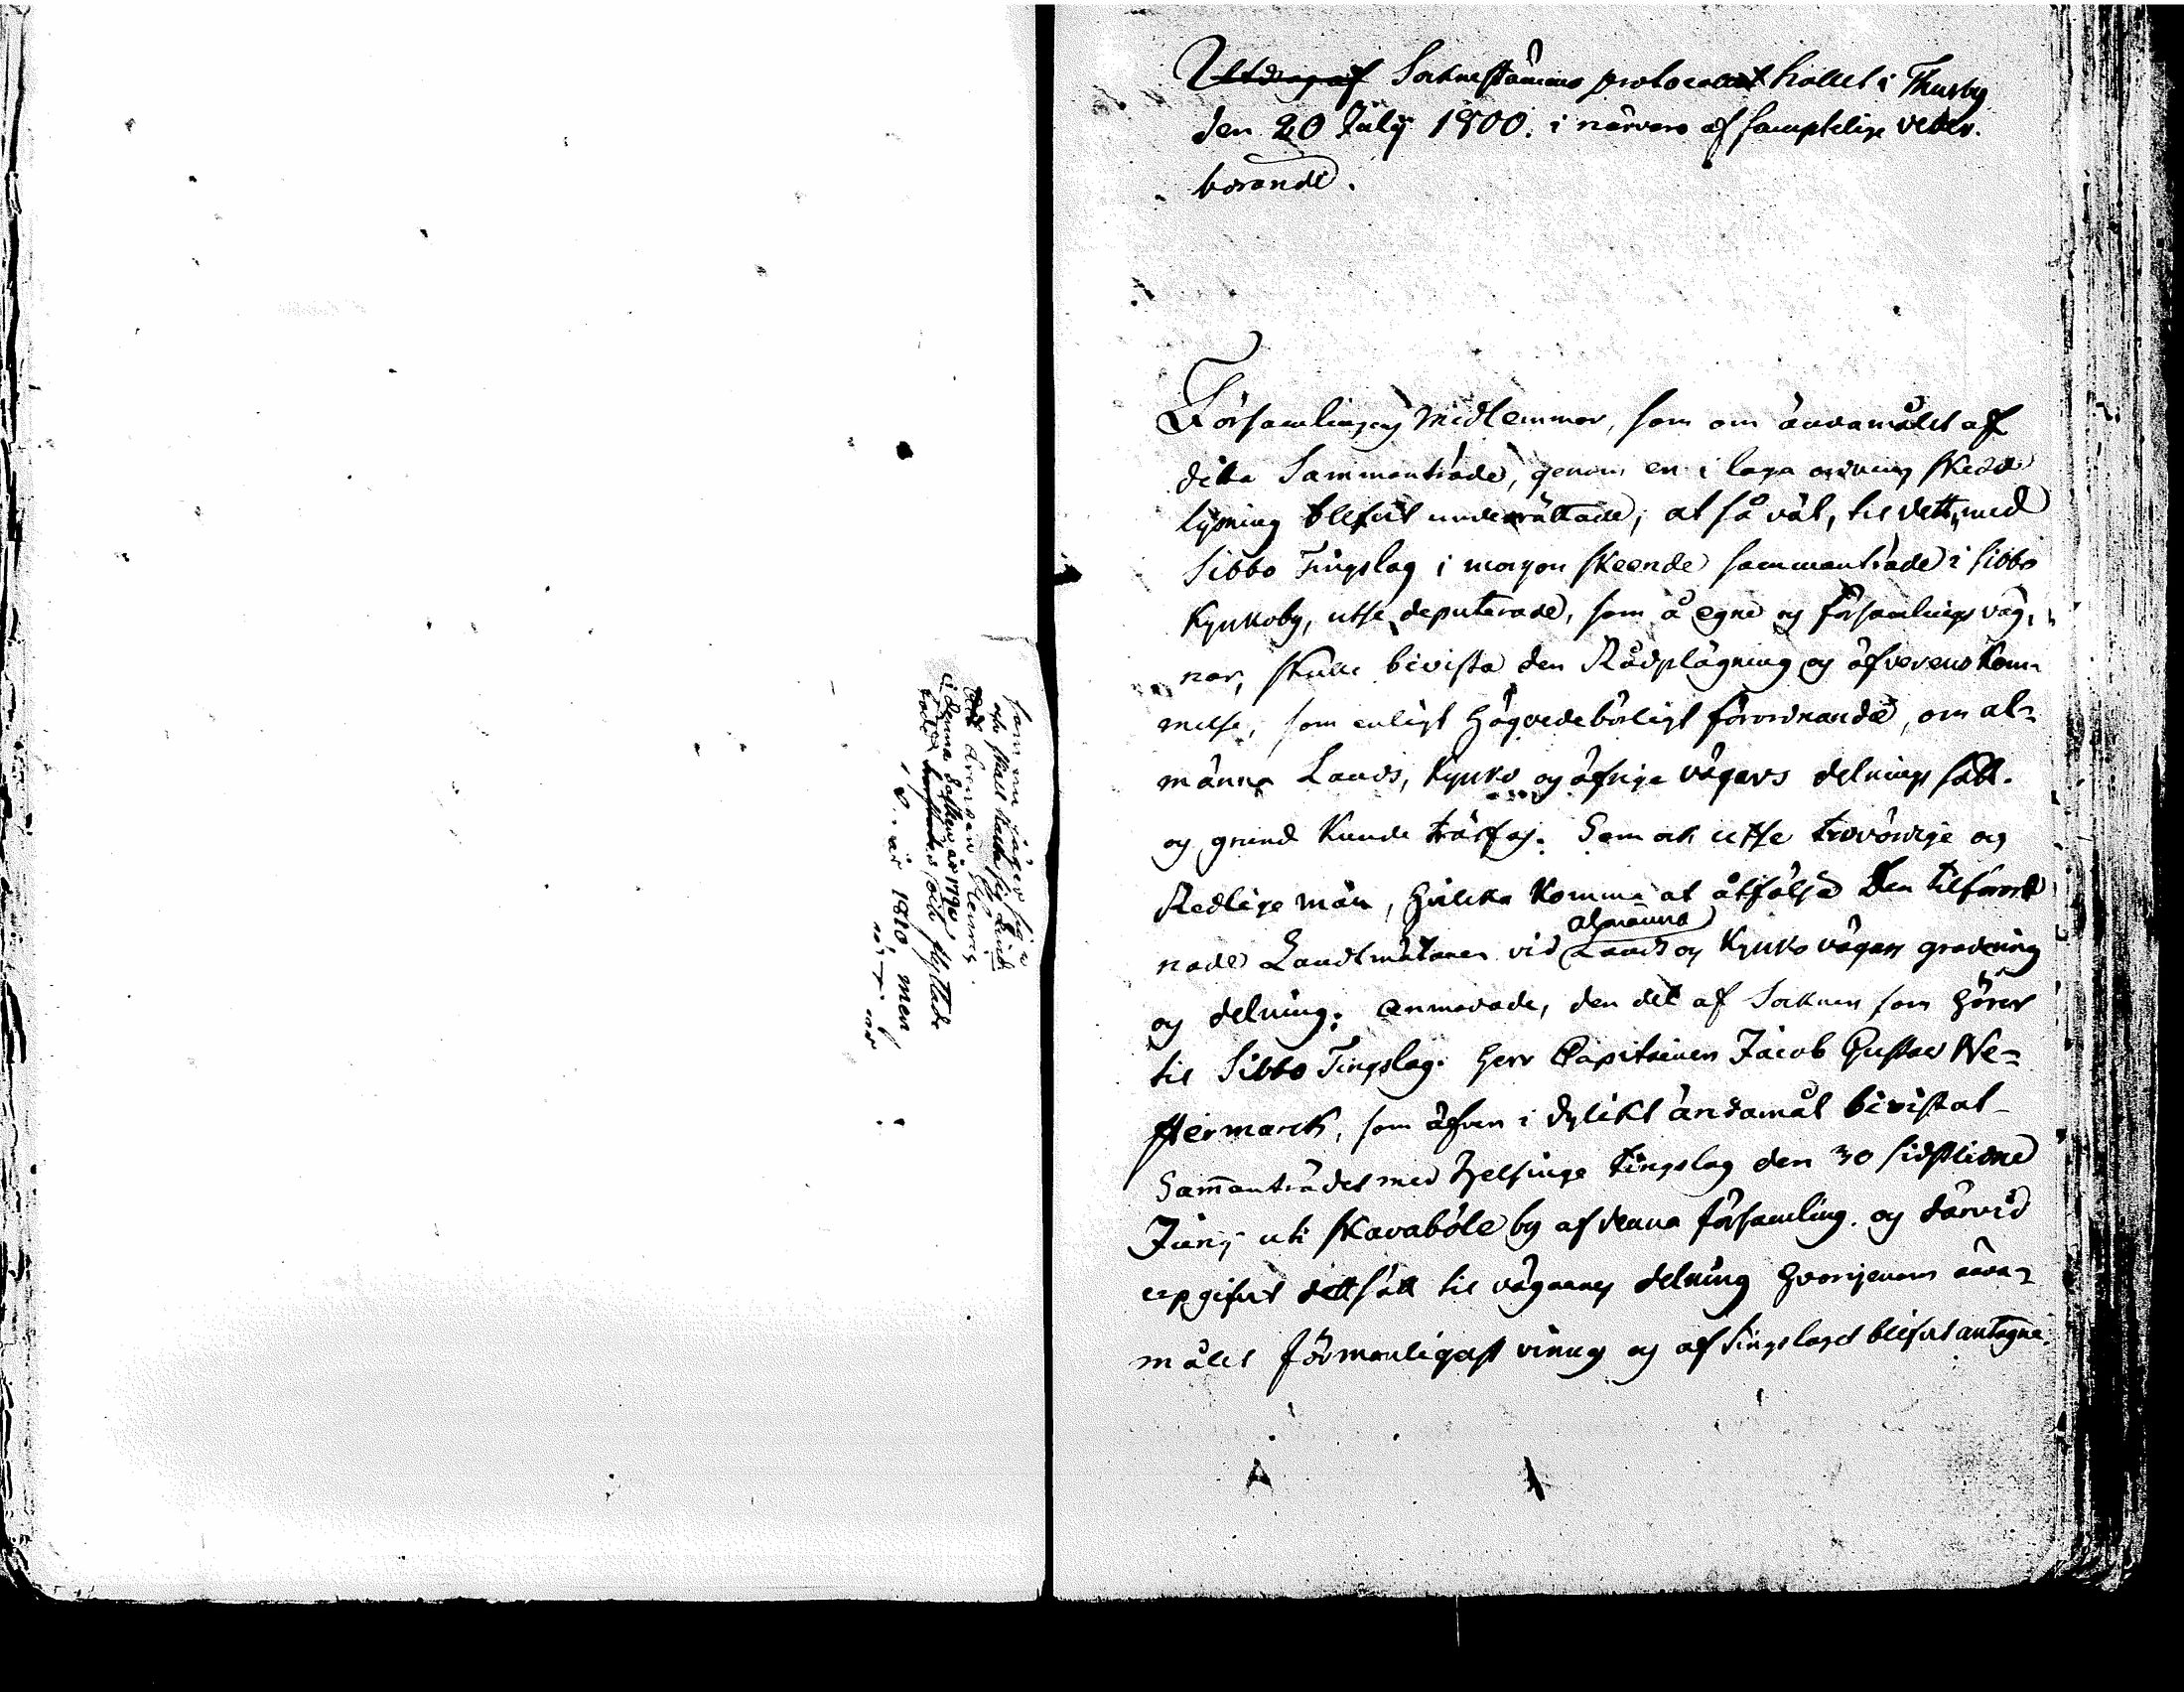 Utdrag af Socknestämmo protocollet hållet i Thusby
den 20 July 1800. i närvaro af samptelige veder-
börande.
Församlingens Medlemmar, som om ändamålet af
detta Sammanträde, genom en i laga ordning skedd
lysning blefvit underrättade, at så väl, til dett, med
Sibbo Tingslag i morgon skeende sammanträde i Sibbo
Kyrkoby, utse deputerade, som å egne og församlings väg-
nar, skulle bevista den Rådplägning og öfverenskom-
melse, som enligt högvedebörligt förordnande, om al-
männa Lands, Kyrko og öfrige vägars delnings sätt
og grund kunde träffas. Som ock utse trovärdige og
Redlige män, hvilka komma at åtfölja Den tilförord
nade Landtmätaren vid almänna Lands og Kyrko vägars gradering
og delning; anmodade, den del af Socknen som hörer
til Sibbo Tingslag. Herr Capitainen Jacob Gustav We-
stermarck, som äfven i dylikt ändamål bevistat
Sammanträdet med Helsinge Tingslag den 30 sidstledne
Juny uti Skavaböle by af denna församling. og därvid
upgifvit dett sätt til vägarnes delning hvarigenom ända-
målet förmonligast vinnes og af Tingslaget blefvit antagne.
som man säger sig
ofta skall kalla sig Lind
Arenden Clemens
i denna Socken år 1790
och flyttade
år 1810 men